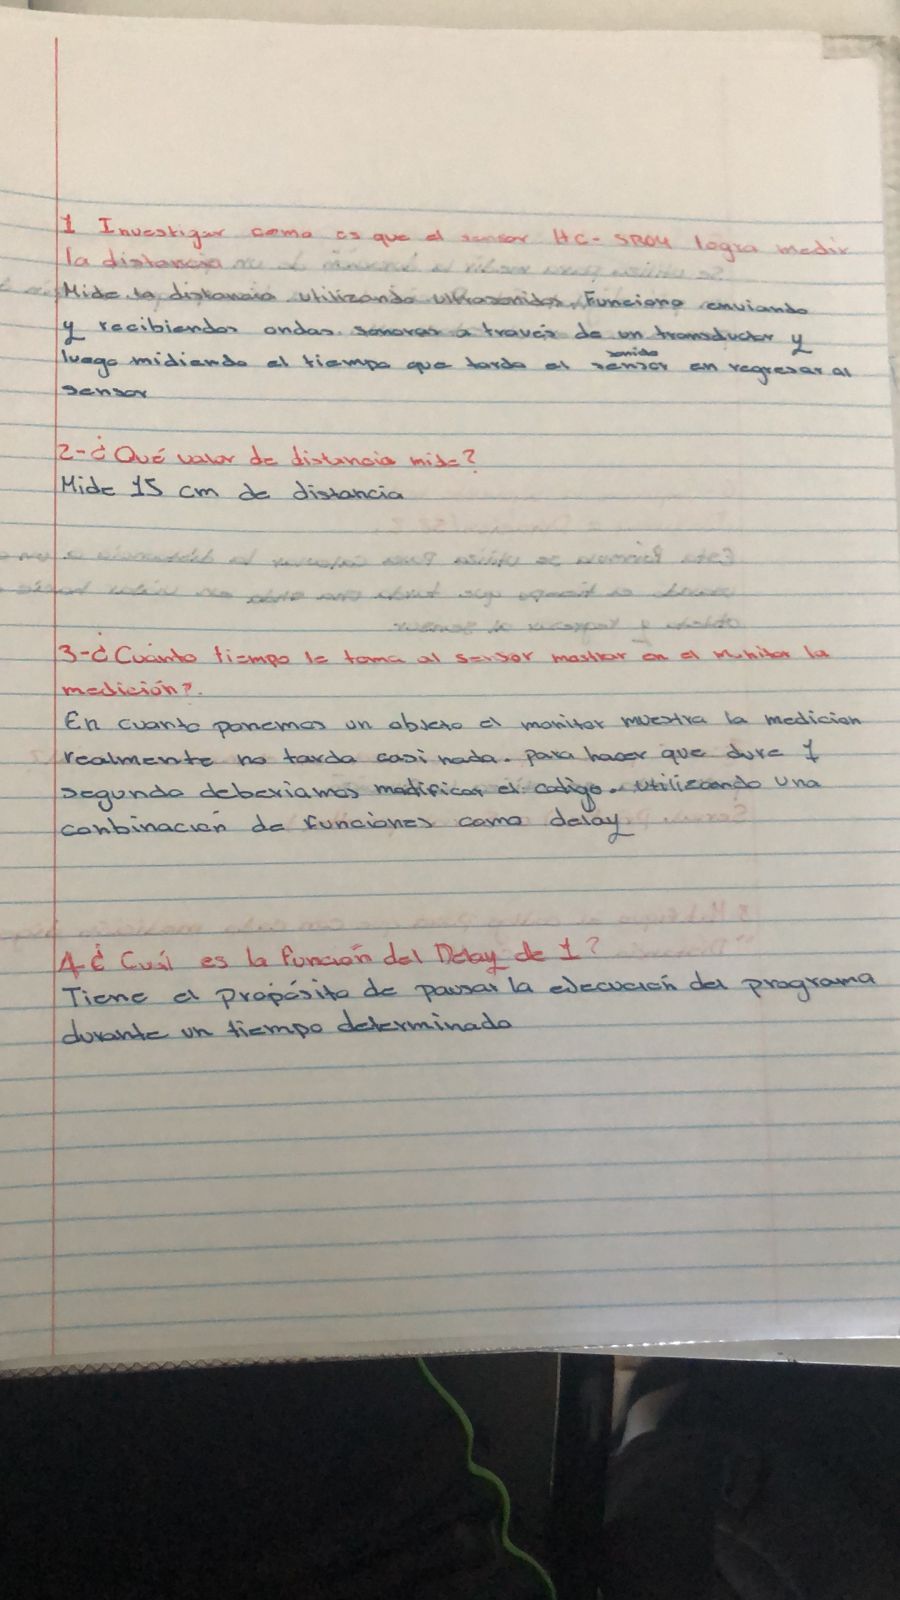 1 Investigar como es que el sensor HC-SR04 logra medir
la distancia
Mide la distancia utilizando ultrasonidos. Funciona enviando
y recibiendos ondas sonoras a través de un transductor y
sonido
luego midiendo el tiempo que tarda el sensor en regresar al
sensor
2-¿Qué valor de distancia mide?
Mide 15 cm de distancia
3-¿Cuánto tiempo le toma al sensor mostrar en el monitor la
medición?.
En cuanto ponemos un objeto el monitor muestra la medicion
realmente no tarda casi nada. para hacer que dure 1
segundo deberiamos modificar el codigo. utilizando una
conbinación de funciones como delay
4-¿Cuál es la función del Delay de 1?
Tiene el propósito de pausar la ejecución del programa
durante un tiempo determinado